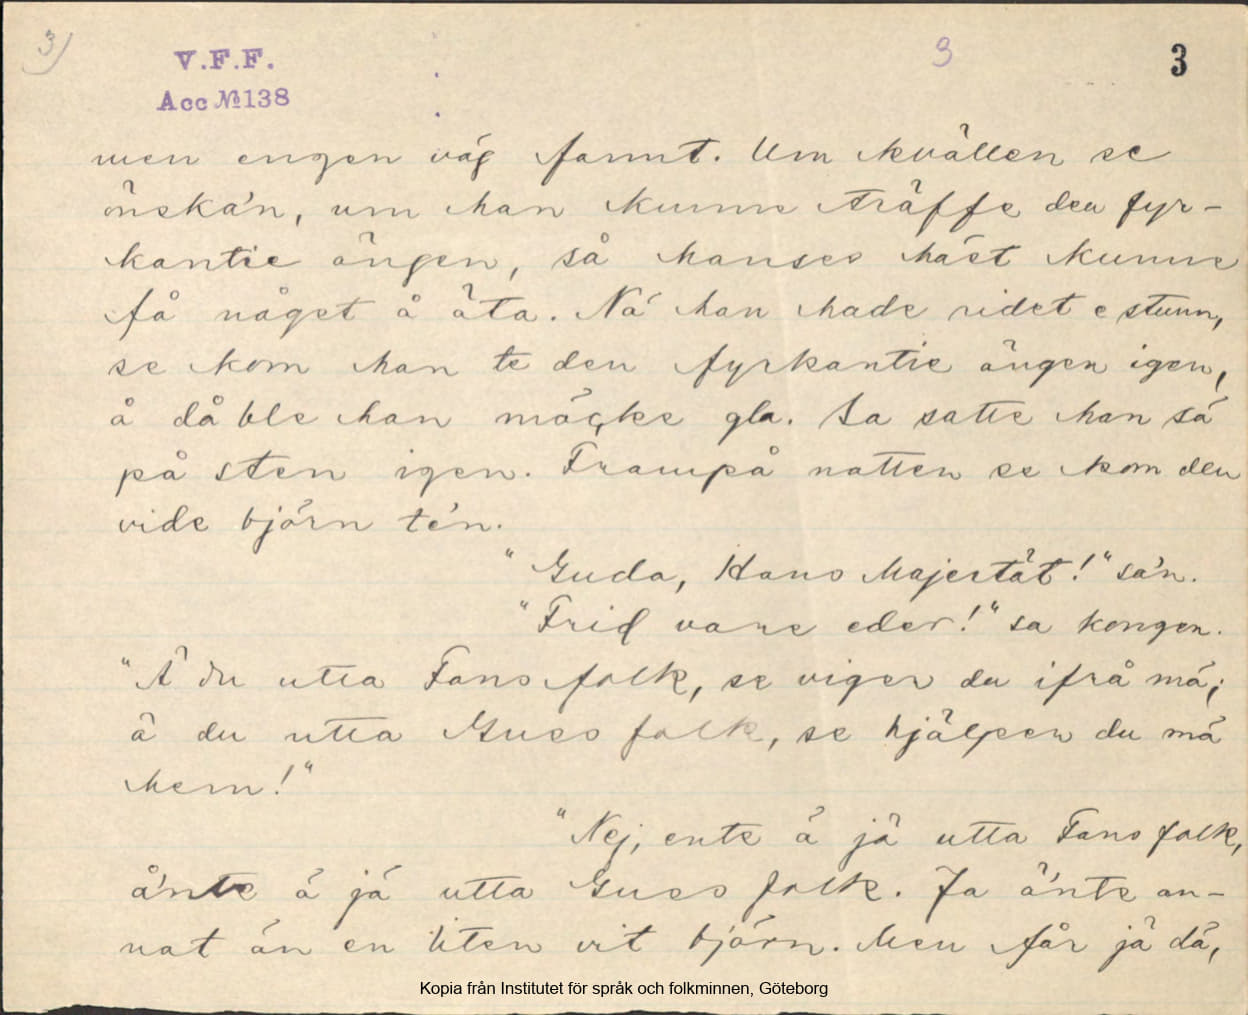 3)
V.F.F.
Acc № 138
3
3
men engen väg fannt. Um kvällen se
önska'n, um han kunne träffe den fyr-
kantie ängen, så hanses häst kunne
få någet å äta. Nä han hade ridet e stunn,
se kom han te den fyrkantie ängen igen,
å då ble han möcke gla. Sa satte han sä
på sten igen. Frampå natten se kom den
vide björn te'n.
"Guda, Hans Majestät!" sa'n.
"Frid vare eder!" sa kongen.
"Ä du utta Fans folk, se viger du ifrå mä;
ä du utta Guss folk, se hjälper du mä
hem!"
"Nej, ente ä jä utta Fans folk,
å'nte ä jä utta Guss folk. Ja ä'nte an-
nat än en liten vit björn. Men får jä dä,
Kopia från Institutet för språk och folkminnen, Göteborg